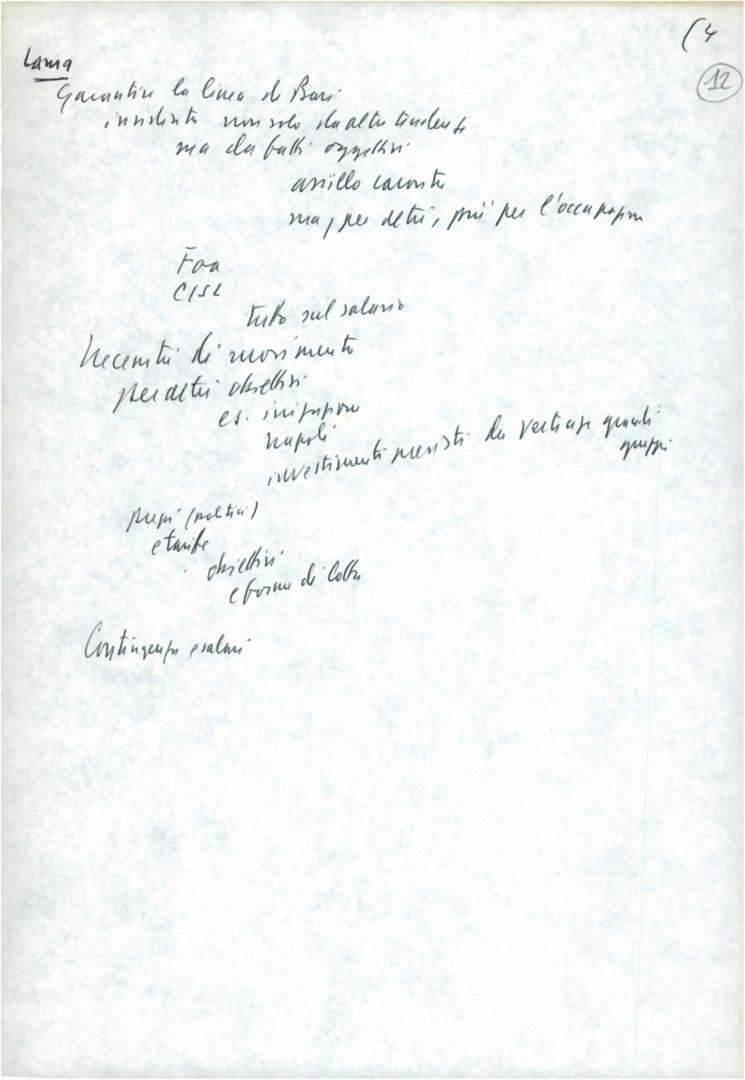 (4
12
Lama
Garantire la linea di Bari
insidiata non solo da altre tendenze
ma da fatti oggettivi
assillo carovita
ma, per altri, più per l'occupazione
Foa
CISL
tutto sul salario
Necessità di movimento
per altri obiettivi
es. irrigazione
Napoli
investimenti previsti da vertenze grandi
gruppi
prezzi (politici)
e tariffe
obiettivi
e forme di lotta
Contingenza e salari